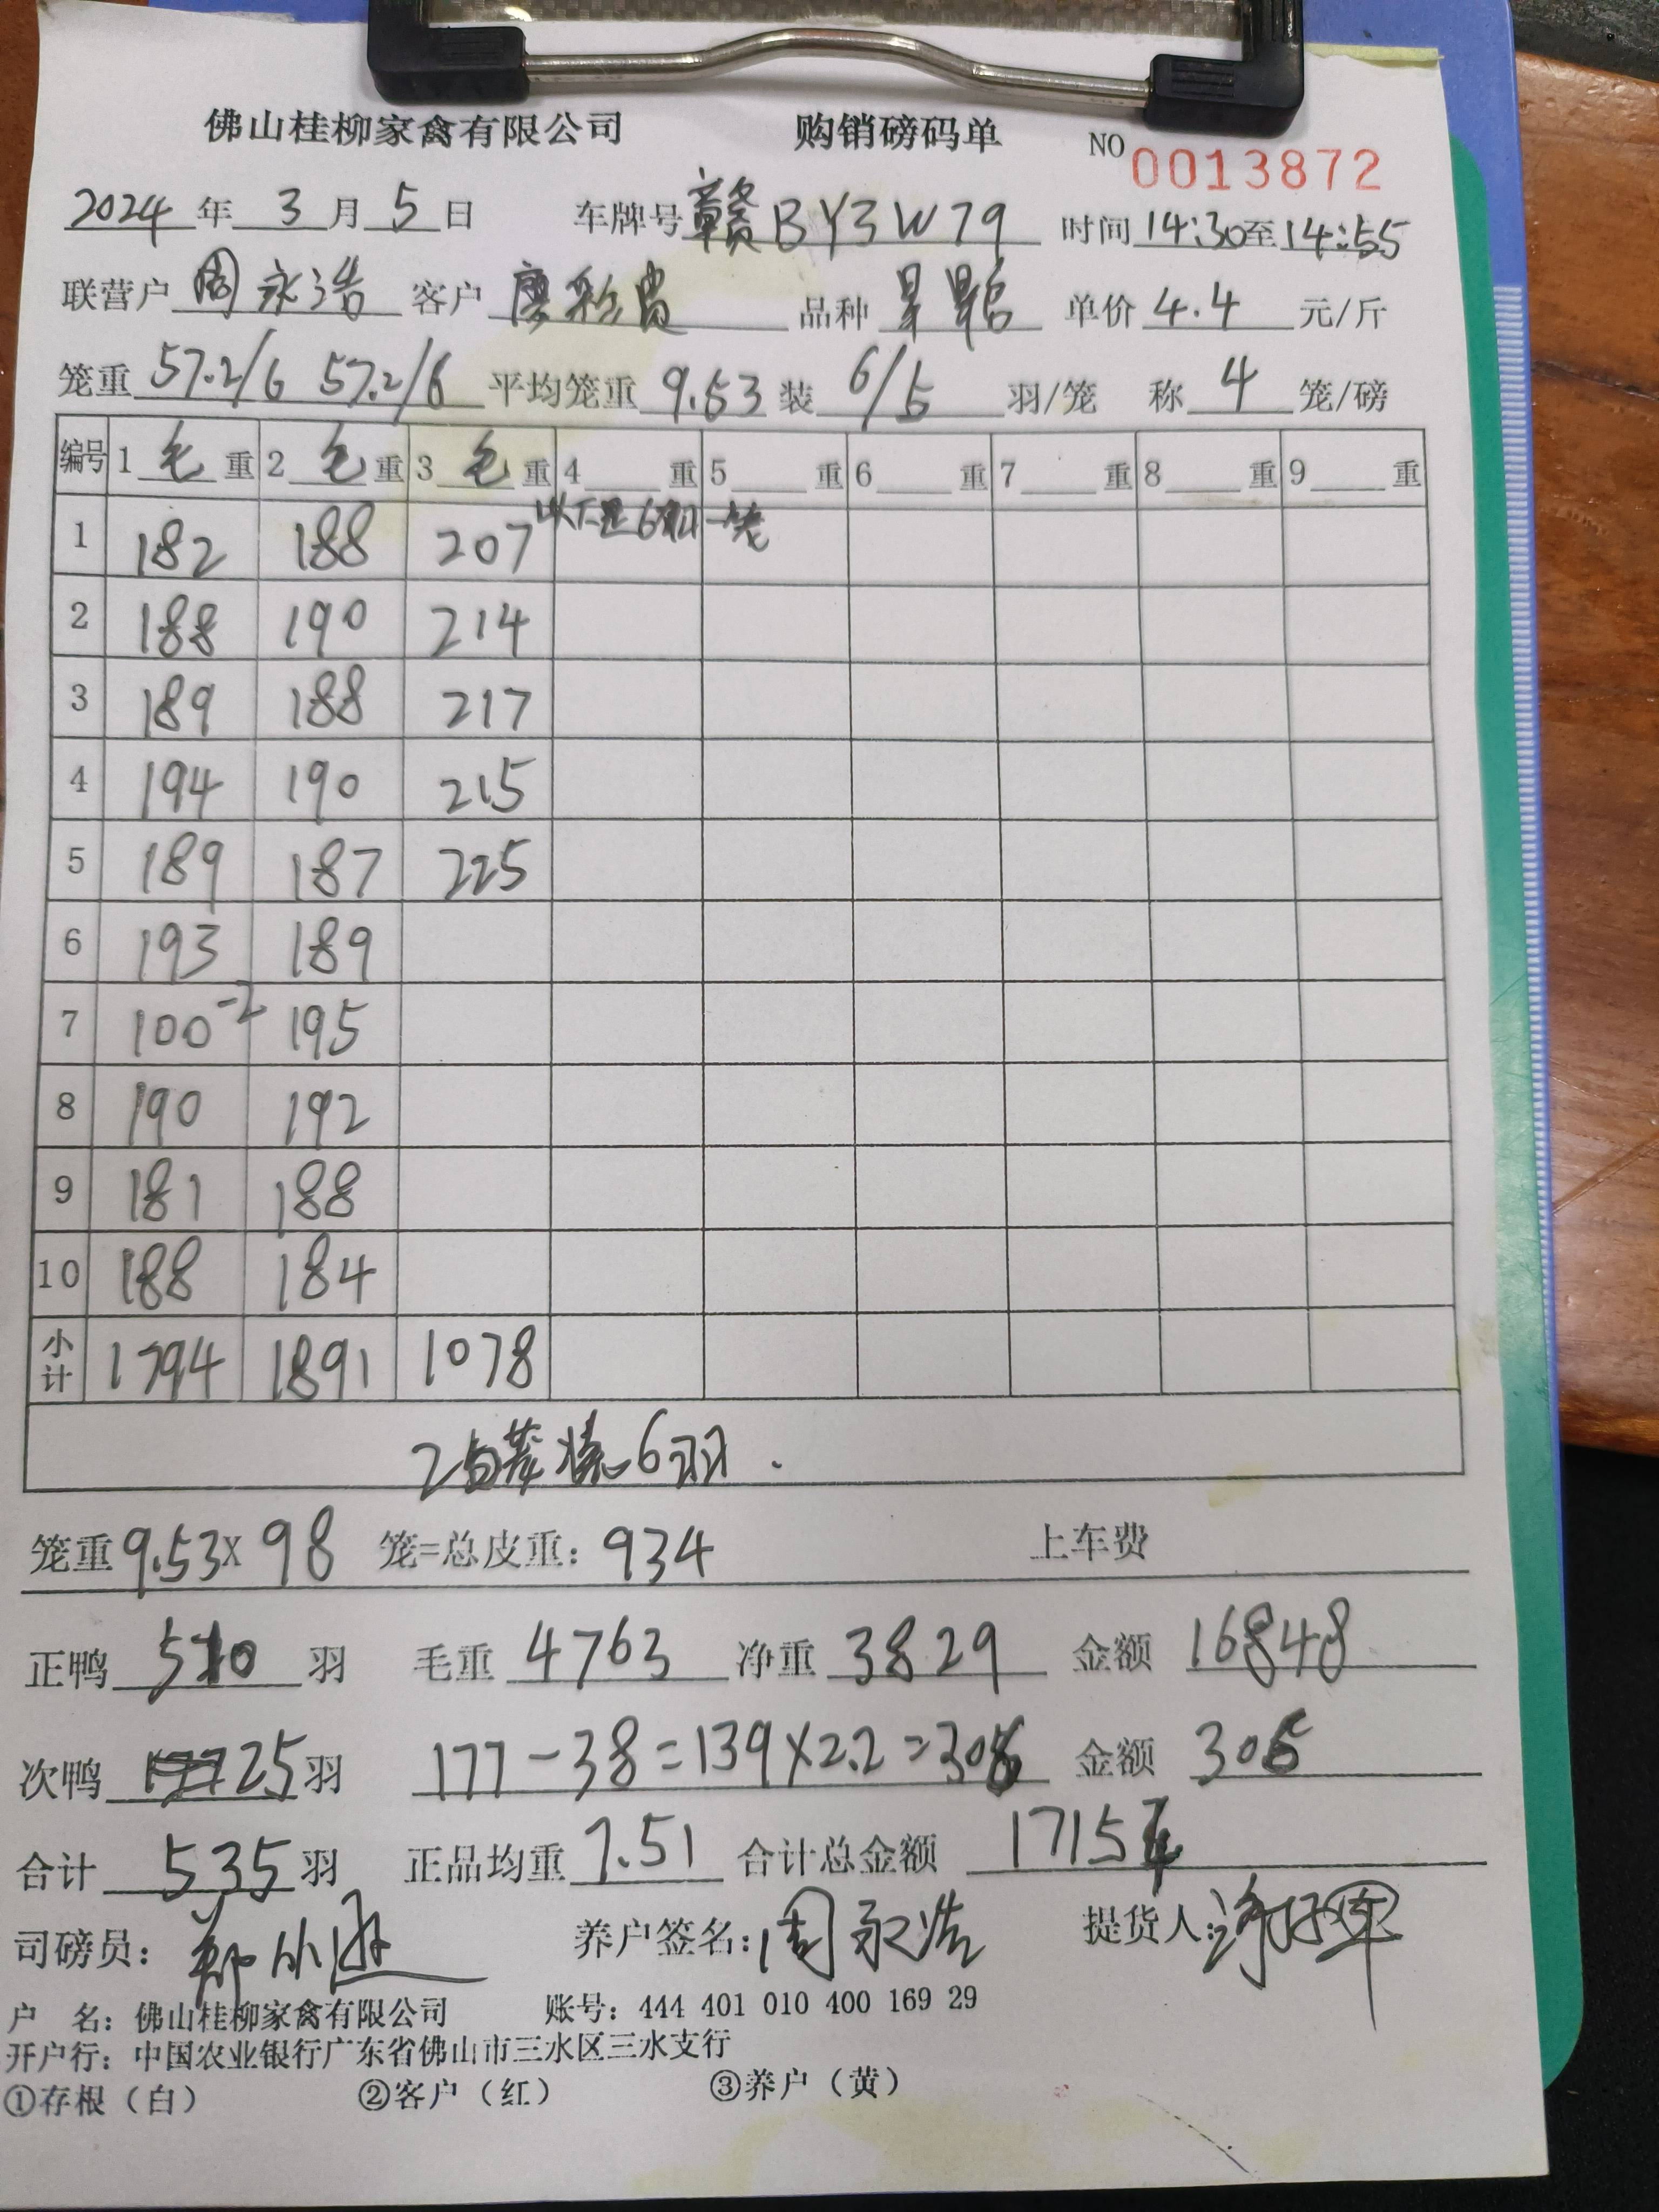 佛山桂柳家禽有限公司 购销磅码单 NO 0013872
2024 年 3 月 5 日 车牌号 赣BY3W79 时间 14:30 至 14:55
联营户 周永浩 客户 廖彩贵 品种 单价 4.4 元/斤
笼重 57.2/6 57.2/6 平均笼重 9.53 装 6/5 羽/笼 称 4 笼/磅
编号 1 毛 重 2 毛 重 3 毛 重 4 重 5 重 6 重 7 重 8 重 9 重
1 182 188 207 以下是6只一笼
2 188 190 214
3 189 188 217
4 194 190 215
5 189 187 225
6 193 189
7 100-2 195
8 190 192
9 181 188
10 188 184
小计 1794 1891 1078
笼重 9.53 X 98 笼=总皮重: 934 上车费
正鸭 510 羽 毛重 4763 净重 3829 金额 16848
次鸭 25 羽 177-38=139×2.2=306 金额 306
合计 535 羽 正品均重 7.51 合计总金额 1715
司磅员: 郑 养户签名: 周永浩 提货人:
户 名: 佛山桂柳家禽有限公司 账号: 444 401 010 400 169 29
开户行: 中国农业银行广东省佛山市三水区三水支行
①存根（白） ②客户（红） ③养户（黄）